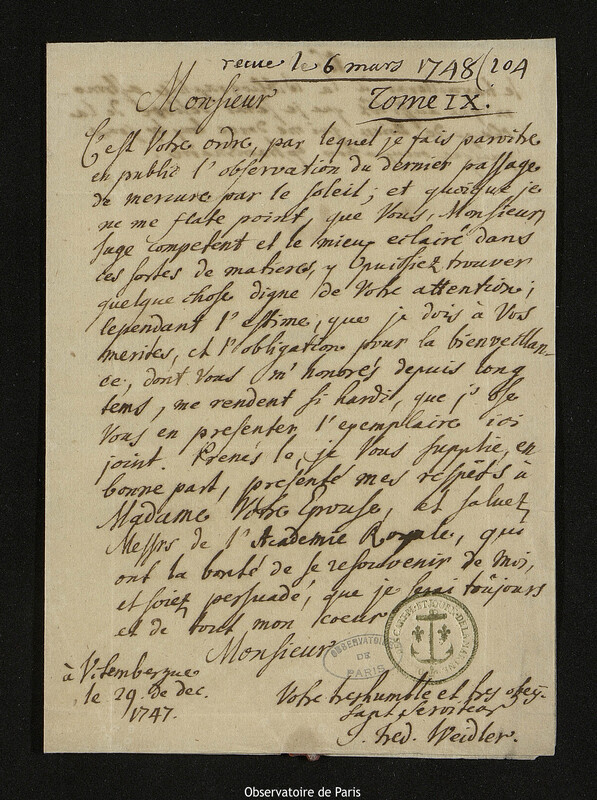 recue le 6 mars 1748 (204
Monsieur Tome IX.
C'est Votre ordre, par lequel je fais paroitre
en public l'observation du dernier passage
de mercure par le soleil; et quoique je
ne me flate point, que Vous, Monsieur,
juge competent et le mieux eclairé dans
ces sortes de matieres, y puissiez trouver
quelque chose digne de Votre attention;
cependant l'estime, que je dois à Vos
merites, et l'obligation pour la bienveillan-
ce, dont Vous m'honorés depuis long
tems, me rendent si hardi, que j'ose
Vous en presenter l'exemplaire ici
joint. Prenés le, je Vous supplie, en
bonne part, presenté mes respèts à
Madame Votre Epouse, et saluez
Messrs de l'Academie Royale, qui
ont la bonté de se resouvenir de moi,
et soiez persuadé, que je serai toûjours
et de tout mon coeur
Monsieur
OBSERVATOIRE
DE
PARIS
à Vitembergue
le 29. de dec.
1747.
Votre treshumble et tres obey-
sant Serviteur
J. Fred. Weidler.
Observatoire de Paris